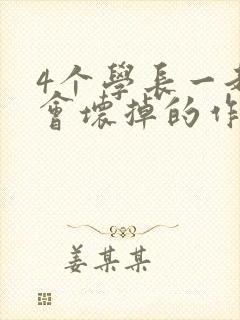 4个學長一
會壞掉的作
姜某某